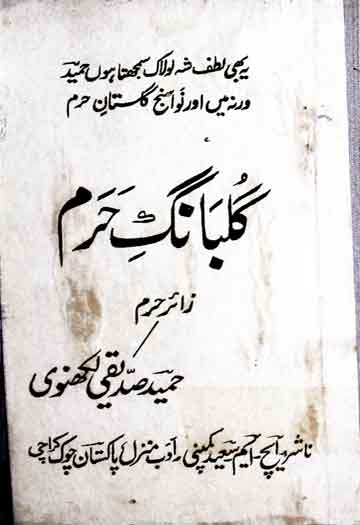 یہ بھی لطف شہ لولاک سمجھتا ہوں حمیدؔ
ورنہ میں اور نَوا سنجِ گلستانِ حرم
گُلبَانگِ حَرَم
زائرِ حرم
حمیدؔ صدّیقی لکھنوی
ناشر: ایچ۔ ایم سَعید کمپنی۔ ادَب منزل پاکستان چوک کراچی